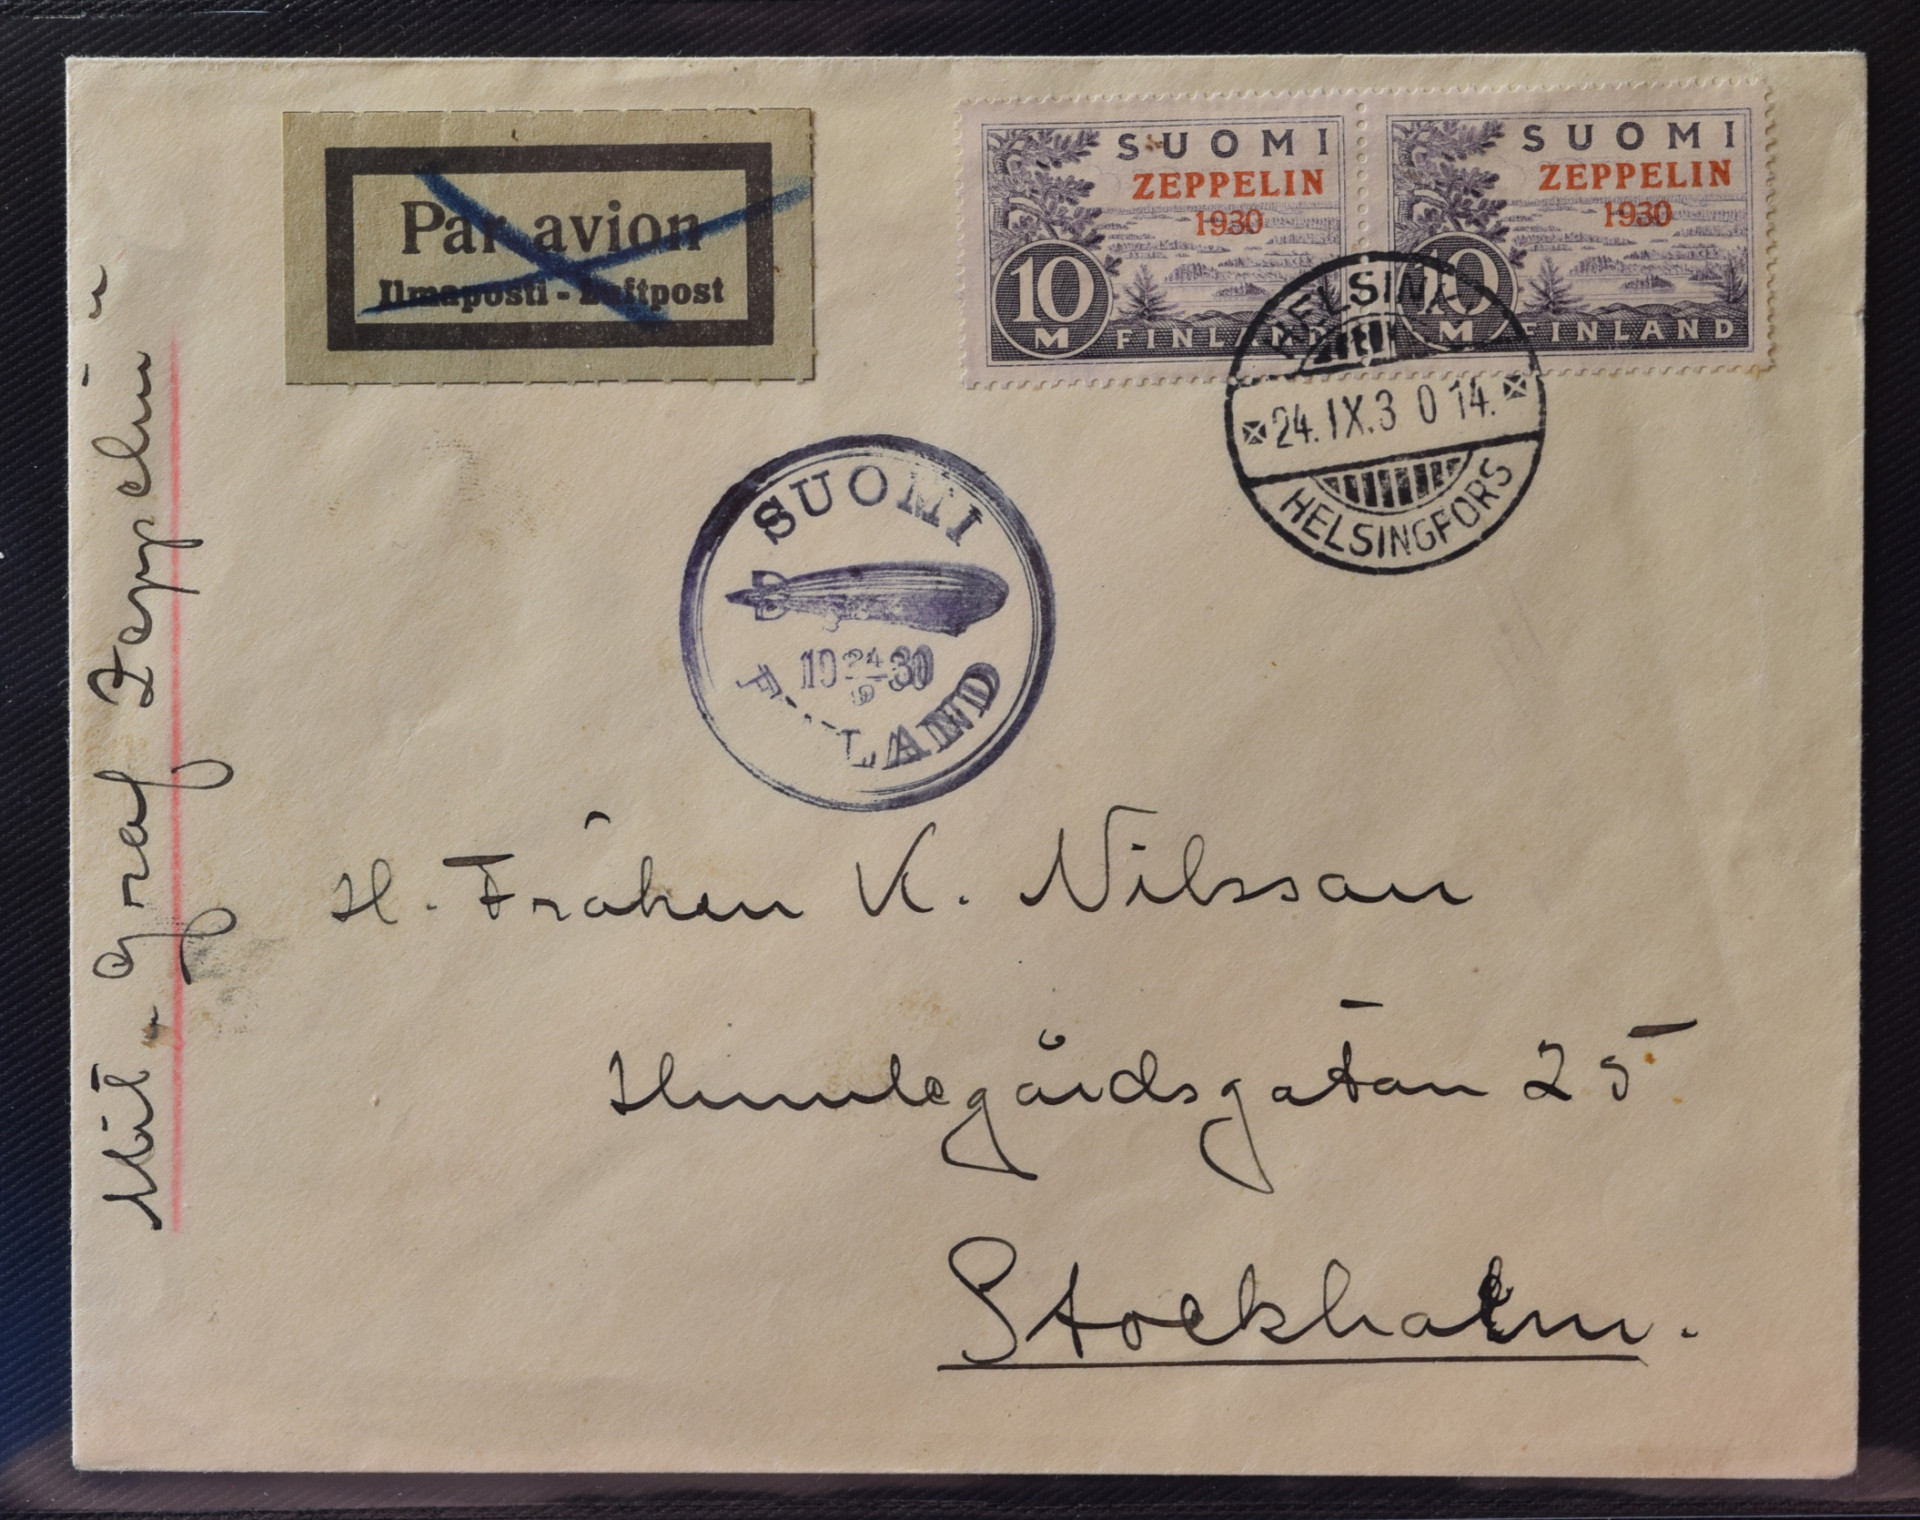 Par avion
Ilmaposti - Luftpost
SUOMI
ZEPPELIN
1930
10
M
FINLAND
SUOMI
ZEPPELIN
1930
10
M
FINLAND
HELSINKI
24.IX.30 14.
HELSINGFORS
SUOMI
19 24/9 30
F LAND
Mit Graf Zeppelin
H. Fröken K. Nilsson
Humlegårdsgatan 25
Stockholm.